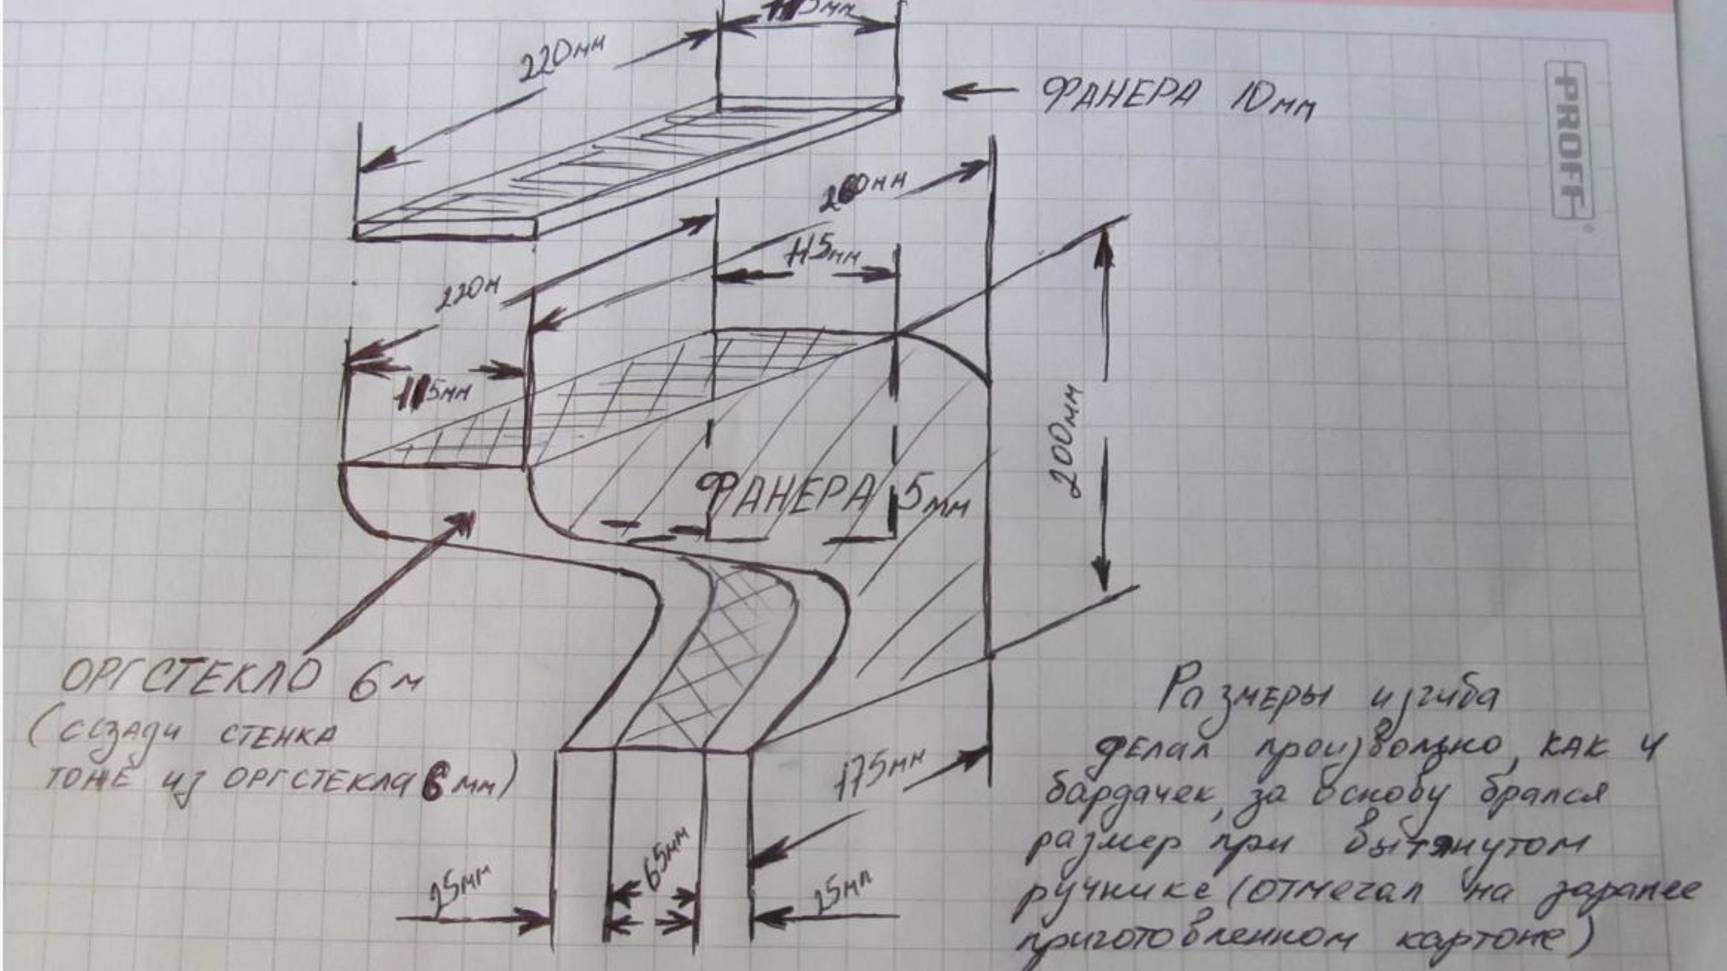 115мм
220мм
ФАНЕРА 10мм
PROFF
260мм
115мм
220м
115мм
200мм
ФАНЕРА 5мм
ОРГСТЕКЛО 6м
(ссзади стенка
тоже из оргстекла 6мм)
Размеры изгиба
делал произвольно, как и
бардачек, за основу брался
размер при вытянутом
ручнике (отмечал на заранее
приготовленном картоне)
175мм
65мм
25мм
25мм